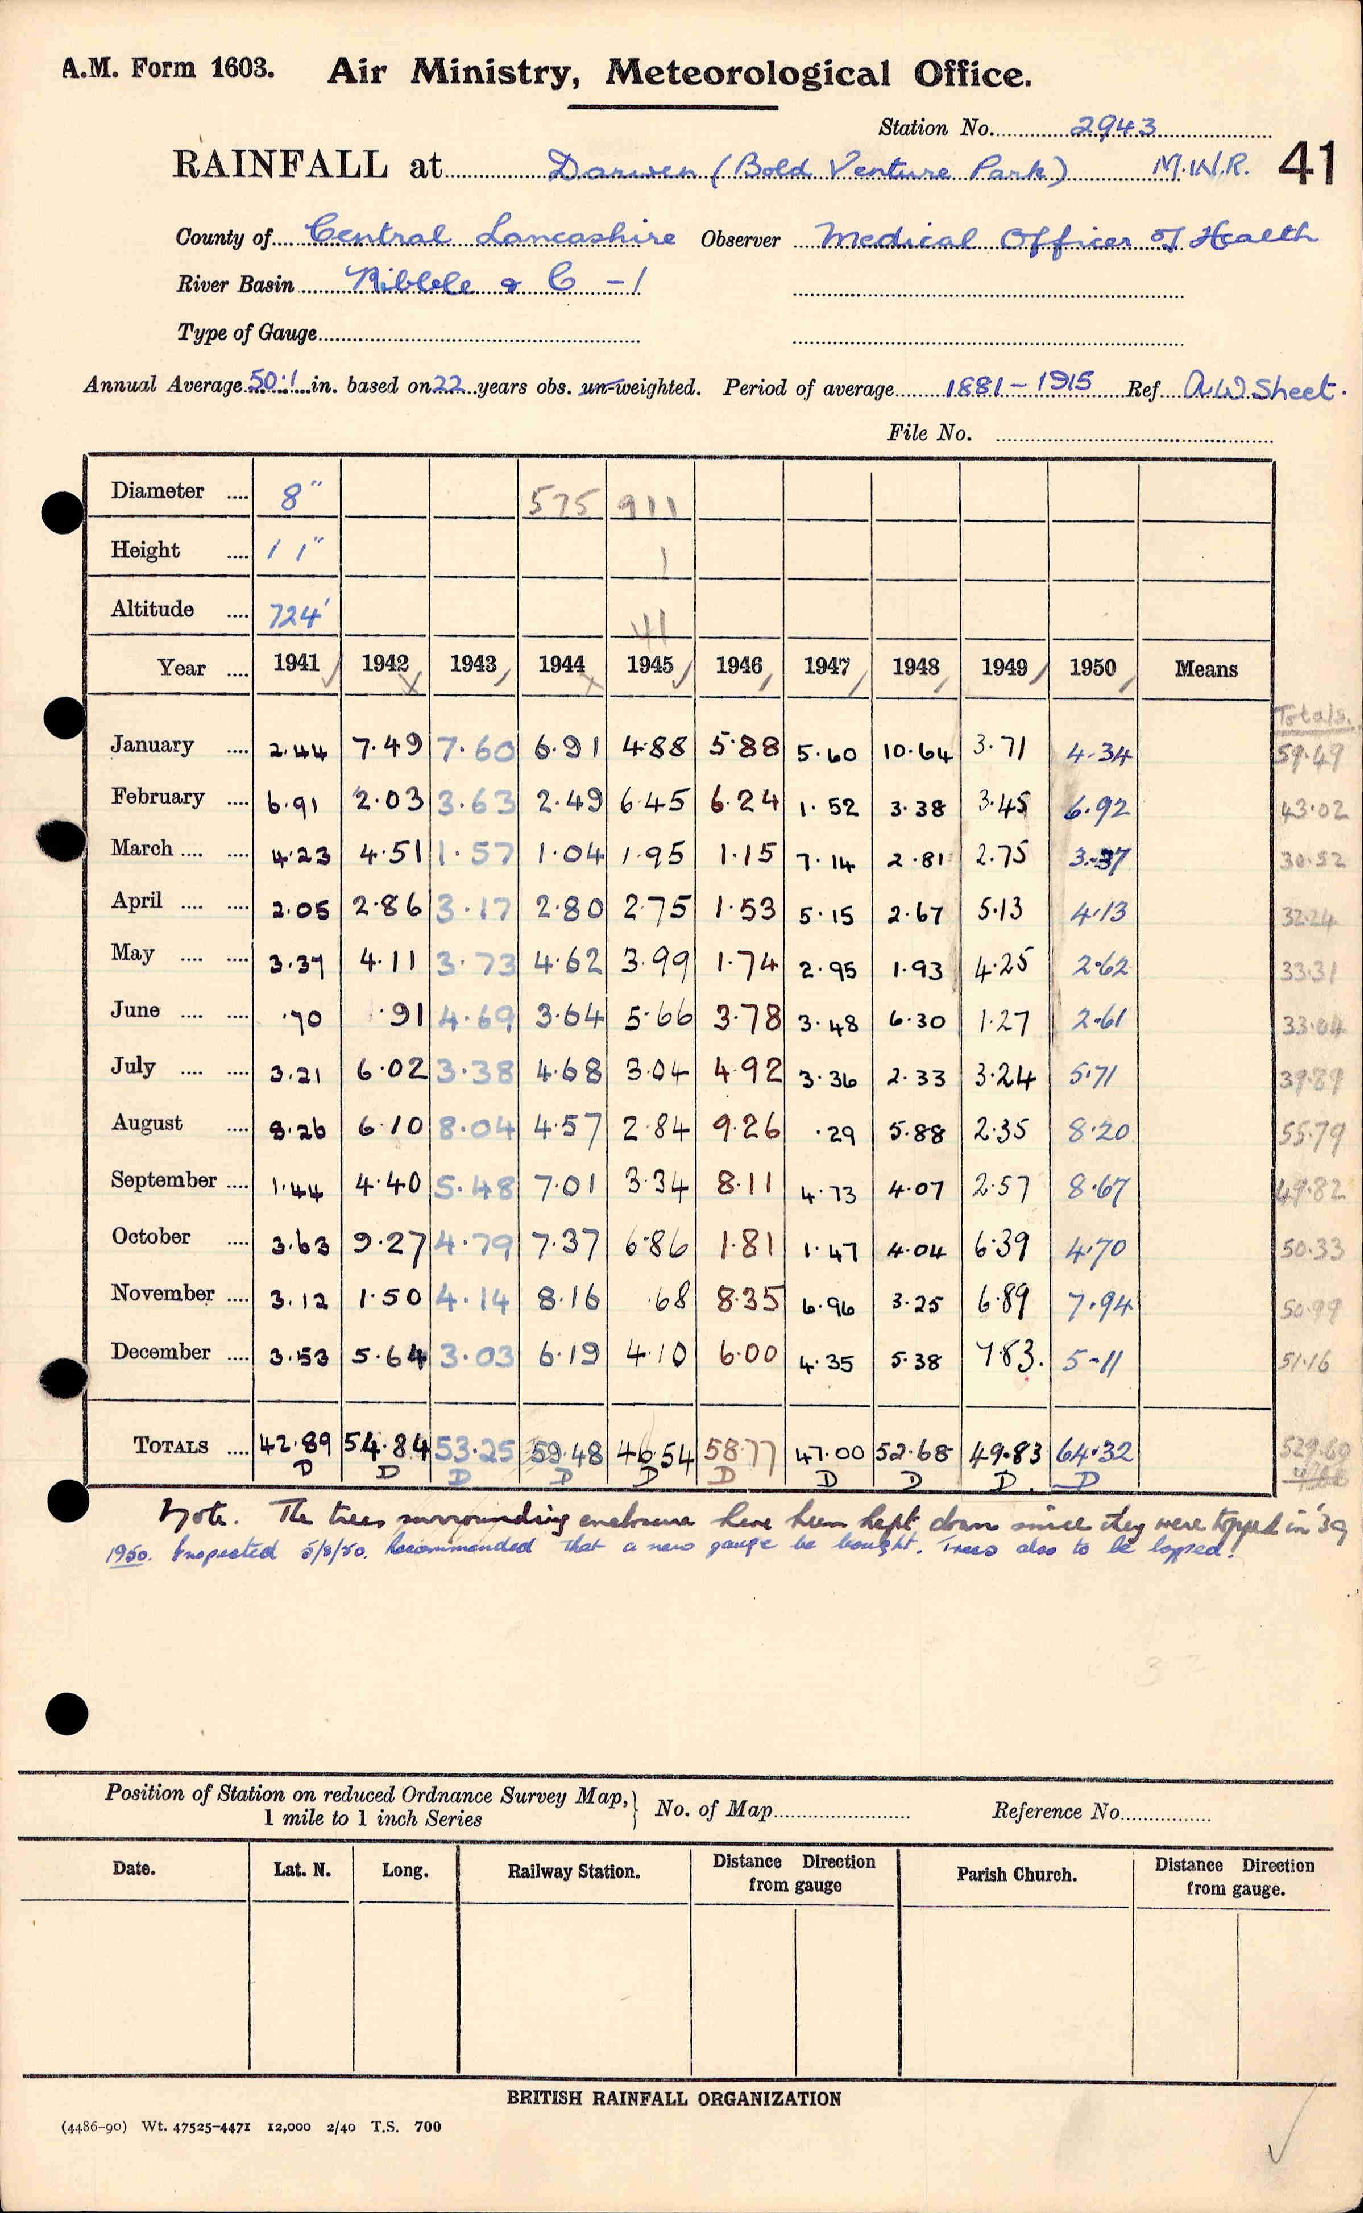 A.M. Form 1603. Air Ministry, Meteorological Office.
Station No. 2943
RAINFALL at Darwen (Bold Venture Park) M.W.R. 41
County of Central Lancashire Observer Medical Officer of Health
River Basin Ribble & C -1
Type of Gauge
Annual Average 50.1 in. based on 22 years obs. un-weighted. Period of average 1881-1915 Ref. A.W. Sheet.
File No.
Diameter .... 8" 575 911
Height .... 1' 1" 1
Altitude .... 724' 41
Year .... 1941 1942 1943 1944 1945 1946 1947 1948 1949 1950 Means
Totals.
January .... 2.44 7.49 7.60 6.91 4.88 5.88 5.60 10.64 3.71 4.34 59.49
February .... 6.91 2.03 3.63 2.49 6.45 6.24 1.52 3.38 3.45 6.92 43.02
March .... .... 4.23 4.51 1.57 1.04 1.95 1.15 7.14 2.81 2.75 3.37 30.52
April .... .... 2.05 2.86 3.17 2.80 2.75 1.53 5.15 2.67 5.13 4.13 32.24
May .... .... 3.37 4.11 3.73 4.62 3.99 1.74 2.95 1.93 4.25 2.62 33.31
June .... .... .70 .91 4.69 3.64 5.66 3.78 3.48 6.30 1.27 2.61 33.04
July .... .... 3.21 6.02 3.38 4.68 3.04 4.92 3.36 2.33 3.24 5.71 39.89
August .... 8.26 6.10 8.04 4.57 2.84 9.26 .29 5.88 2.35 8.20 55.79
September .... 1.44 4.40 5.48 7.01 3.34 8.11 4.73 4.07 2.57 8.67 49.82
October .... 3.63 9.27 4.79 7.37 6.86 1.81 1.47 4.04 6.39 4.70 50.33
November .... 3.12 1.50 4.14 8.16 .68 8.35 6.96 3.25 6.89 7.94 50.99
December .... 3.53 5.64 3.03 6.19 4.10 6.00 4.35 5.38 7.83. 5.11 51.16
TOTALS .... 42.89 54.84 53.25 59.48 46.54 58.77 47.00 52.68 49.83 64.32 529.60
D D D D D D D D D. D
Note. The trees surrounding enclosure have been kept down since they were topped in '39
1950. Inspected 5/8/50. Recommended that a new gauge be bought. Trees also to be lopped.
Position of Station on reduced Ordnance Survey Map, 1 mile to 1 inch Series } No. of Map Reference No.
Date. Lat. N. Long. Railway Station. Distance Direction from gauge Parish Church. Distance Direction from gauge.
BRITISH RAINFALL ORGANIZATION
(4486-90) Wt. 47525-4471 12,000 2/40 T.S. 700